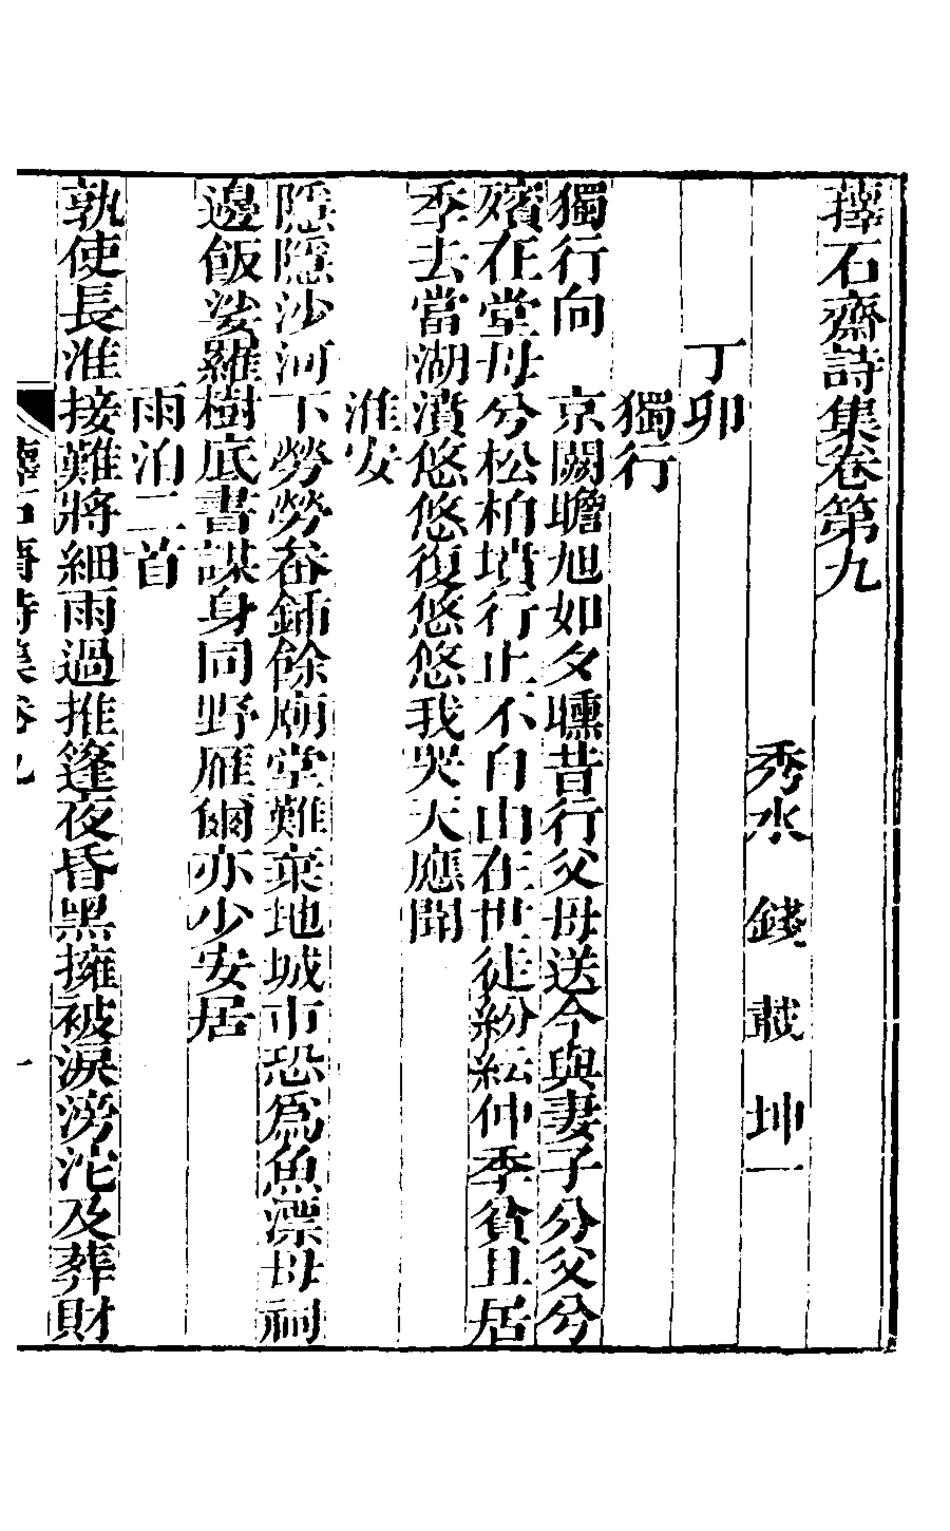 蘀石齋詩集卷第九
秀水 錢 載 坤一
丁卯
獨行
獨行向 京闕瞻旭如夕曛昔行父母送今與妻子分父兮
殯在堂母兮松柏墳行止不自由在世徒紛紜仲季貧且居
季去當湖濆悠悠復悠悠我哭天應聞
淮安
隱隱沙河下勞勞畚鍤餘廟堂難棄地城市恐爲魚漂母祠
邊飯娑羅樹底書謀身同野雁爾亦少安居
雨泊二首
孰使長淮接難將細雨過推篷夜昏黑擁被淚滂沱及葬財
蘀石齋詩集卷九
一